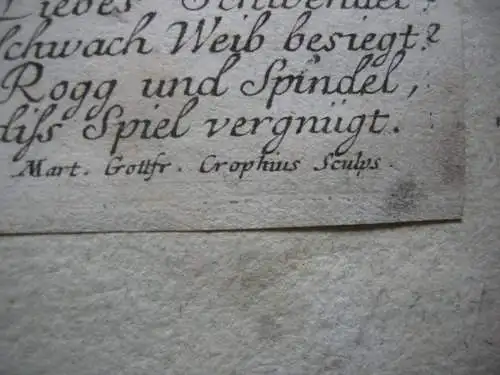 Liebes Schwendel?
schwach Weib besiegt?
Rogg und Spindel,
diss Spiel vergnügt.
Mart. Gottfr. Crophius Sculps.